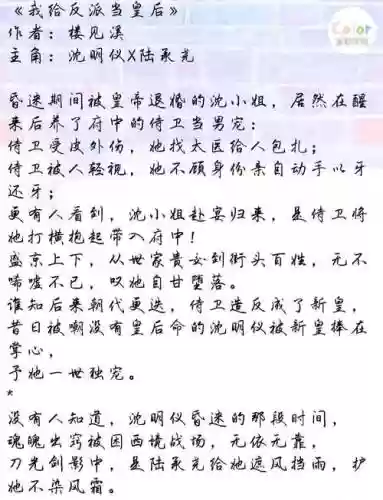 《我给反派当皇后》
作者：楼见溪
主角：沈明仪X陆承尧
昏迷期间被皇帝退婚的沈小姐，居然在醒
来后养了府中的侍卫当男宠：
侍卫受皮外伤，她找太医给人包扎；
侍卫被人轻视，她不顾身份亲自动手以牙
还牙；
更有人看到，沈小姐赴宴归来，是侍卫将
她打横抱起带入府中！
盛京上下，从世家贵女到街头百姓，无不
唏嘘不已，叹她自甘堕落。
谁知后来朝代更迭，侍卫造反成了新皇，
昔日被嘲没有皇后命的沈明仪被新皇捧在
掌心，
予她一世独宠。
*
没有人知道，沈明仪昏迷的那段时间，
魂魄出窍被困西境战场，无依无靠，
刀光剑影中，是陆承尧给她遮风挡雨，护
她不染风霜。
Color